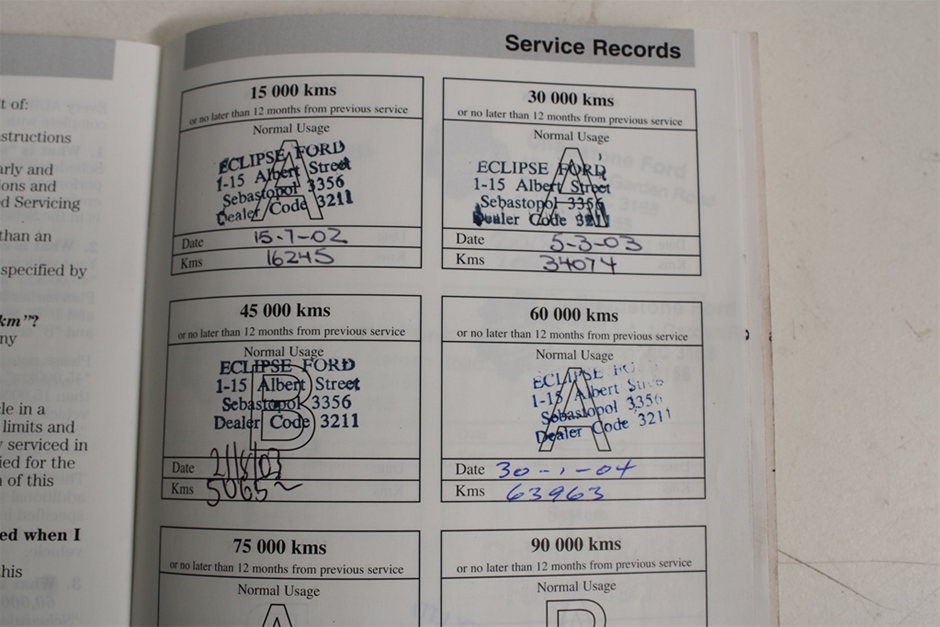 t of:
structions
arly and
ions and
d Servicing
than an
specified by
km"?
ny
le in a
limits and
y serviced in
ied for the
n of this
ed when I
this
Service Records
15 000 kms
or no later than 12 months from previous service
Normal Usage
A
ECLIPSE FORD
1-15 Albert Street
Sebastopol 3356
Dealer Code 3211
Date 15-7-02
Kms 16245
30 000 kms
or no later than 12 months from previous service
Normal Usage
A
ECLIPSE FORD
1-15 Albert Street
Sebastopol 3356
Dealer Code 3211
Date 5-3-03
Kms 34074
45 000 kms
or no later than 12 months from previous service
Normal Usage
B
ECLIPSE FORD
1-15 Albert Street
Sebastopol 3356
Dealer Code 3211
Date
Kms
60 000 kms
or no later than 12 months from previous service
Normal Usage
A
ECLIPSE
1-15 Albert
Sebastopol 3356
Dealer Code 3211
Date 30-1-04
Kms 63963
75 000 kms
or no later than 12 months from previous service
Normal Usage
90 000 kms
or no later than 12 months from previous service
Normal Usage